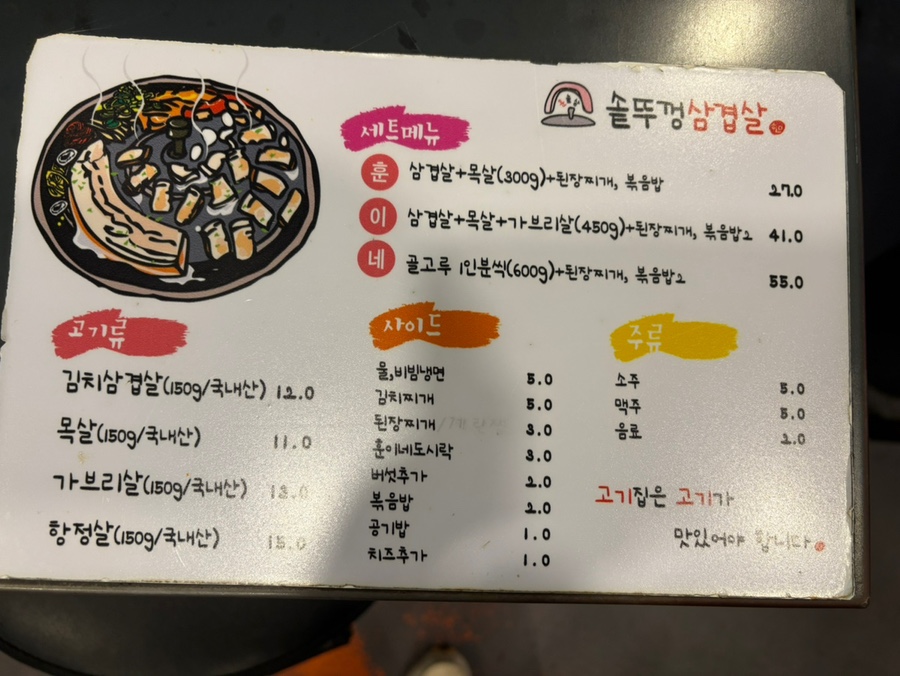 솥뚜껑삼겹살
세트메뉴
훈 삼겹살+목살(300g)+된장찌개, 볶음밥 27.0
이 삼겹살+목살+가브리살(450g)+된장찌개, 볶음밥2 41.0
네 골고루 1인분씩(600g)+된장찌개, 볶음밥2 55.0
고기류
김치삼겹살(150g/국내산) 12.0
목살(150g/국내산) 11.0
가브리살(150g/국내산)
항정살(150g/국내산) 15.0
사이드
물,비빔냉면 5.0
김치찌개 5.0
된장찌개 3.0
훈이네도시락 3.0
버섯추가 2.0
볶음밥 2.0
공기밥 1.0
치즈추가 1.0
주류
소주 5.0
맥주 5.0
음료 2.0
고기집은 고기가
맛있어야 합니다